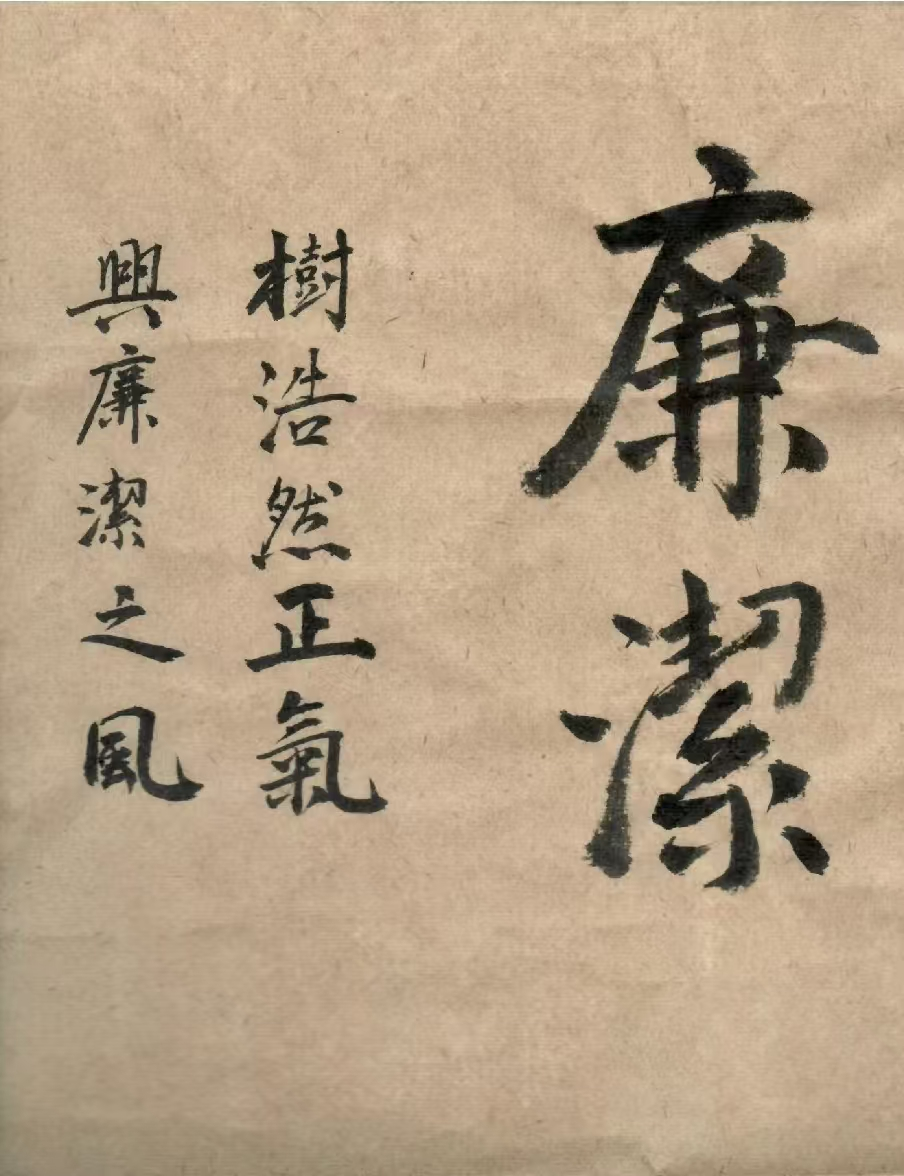 廉潔
樹浩然正氣
興廉潔之風